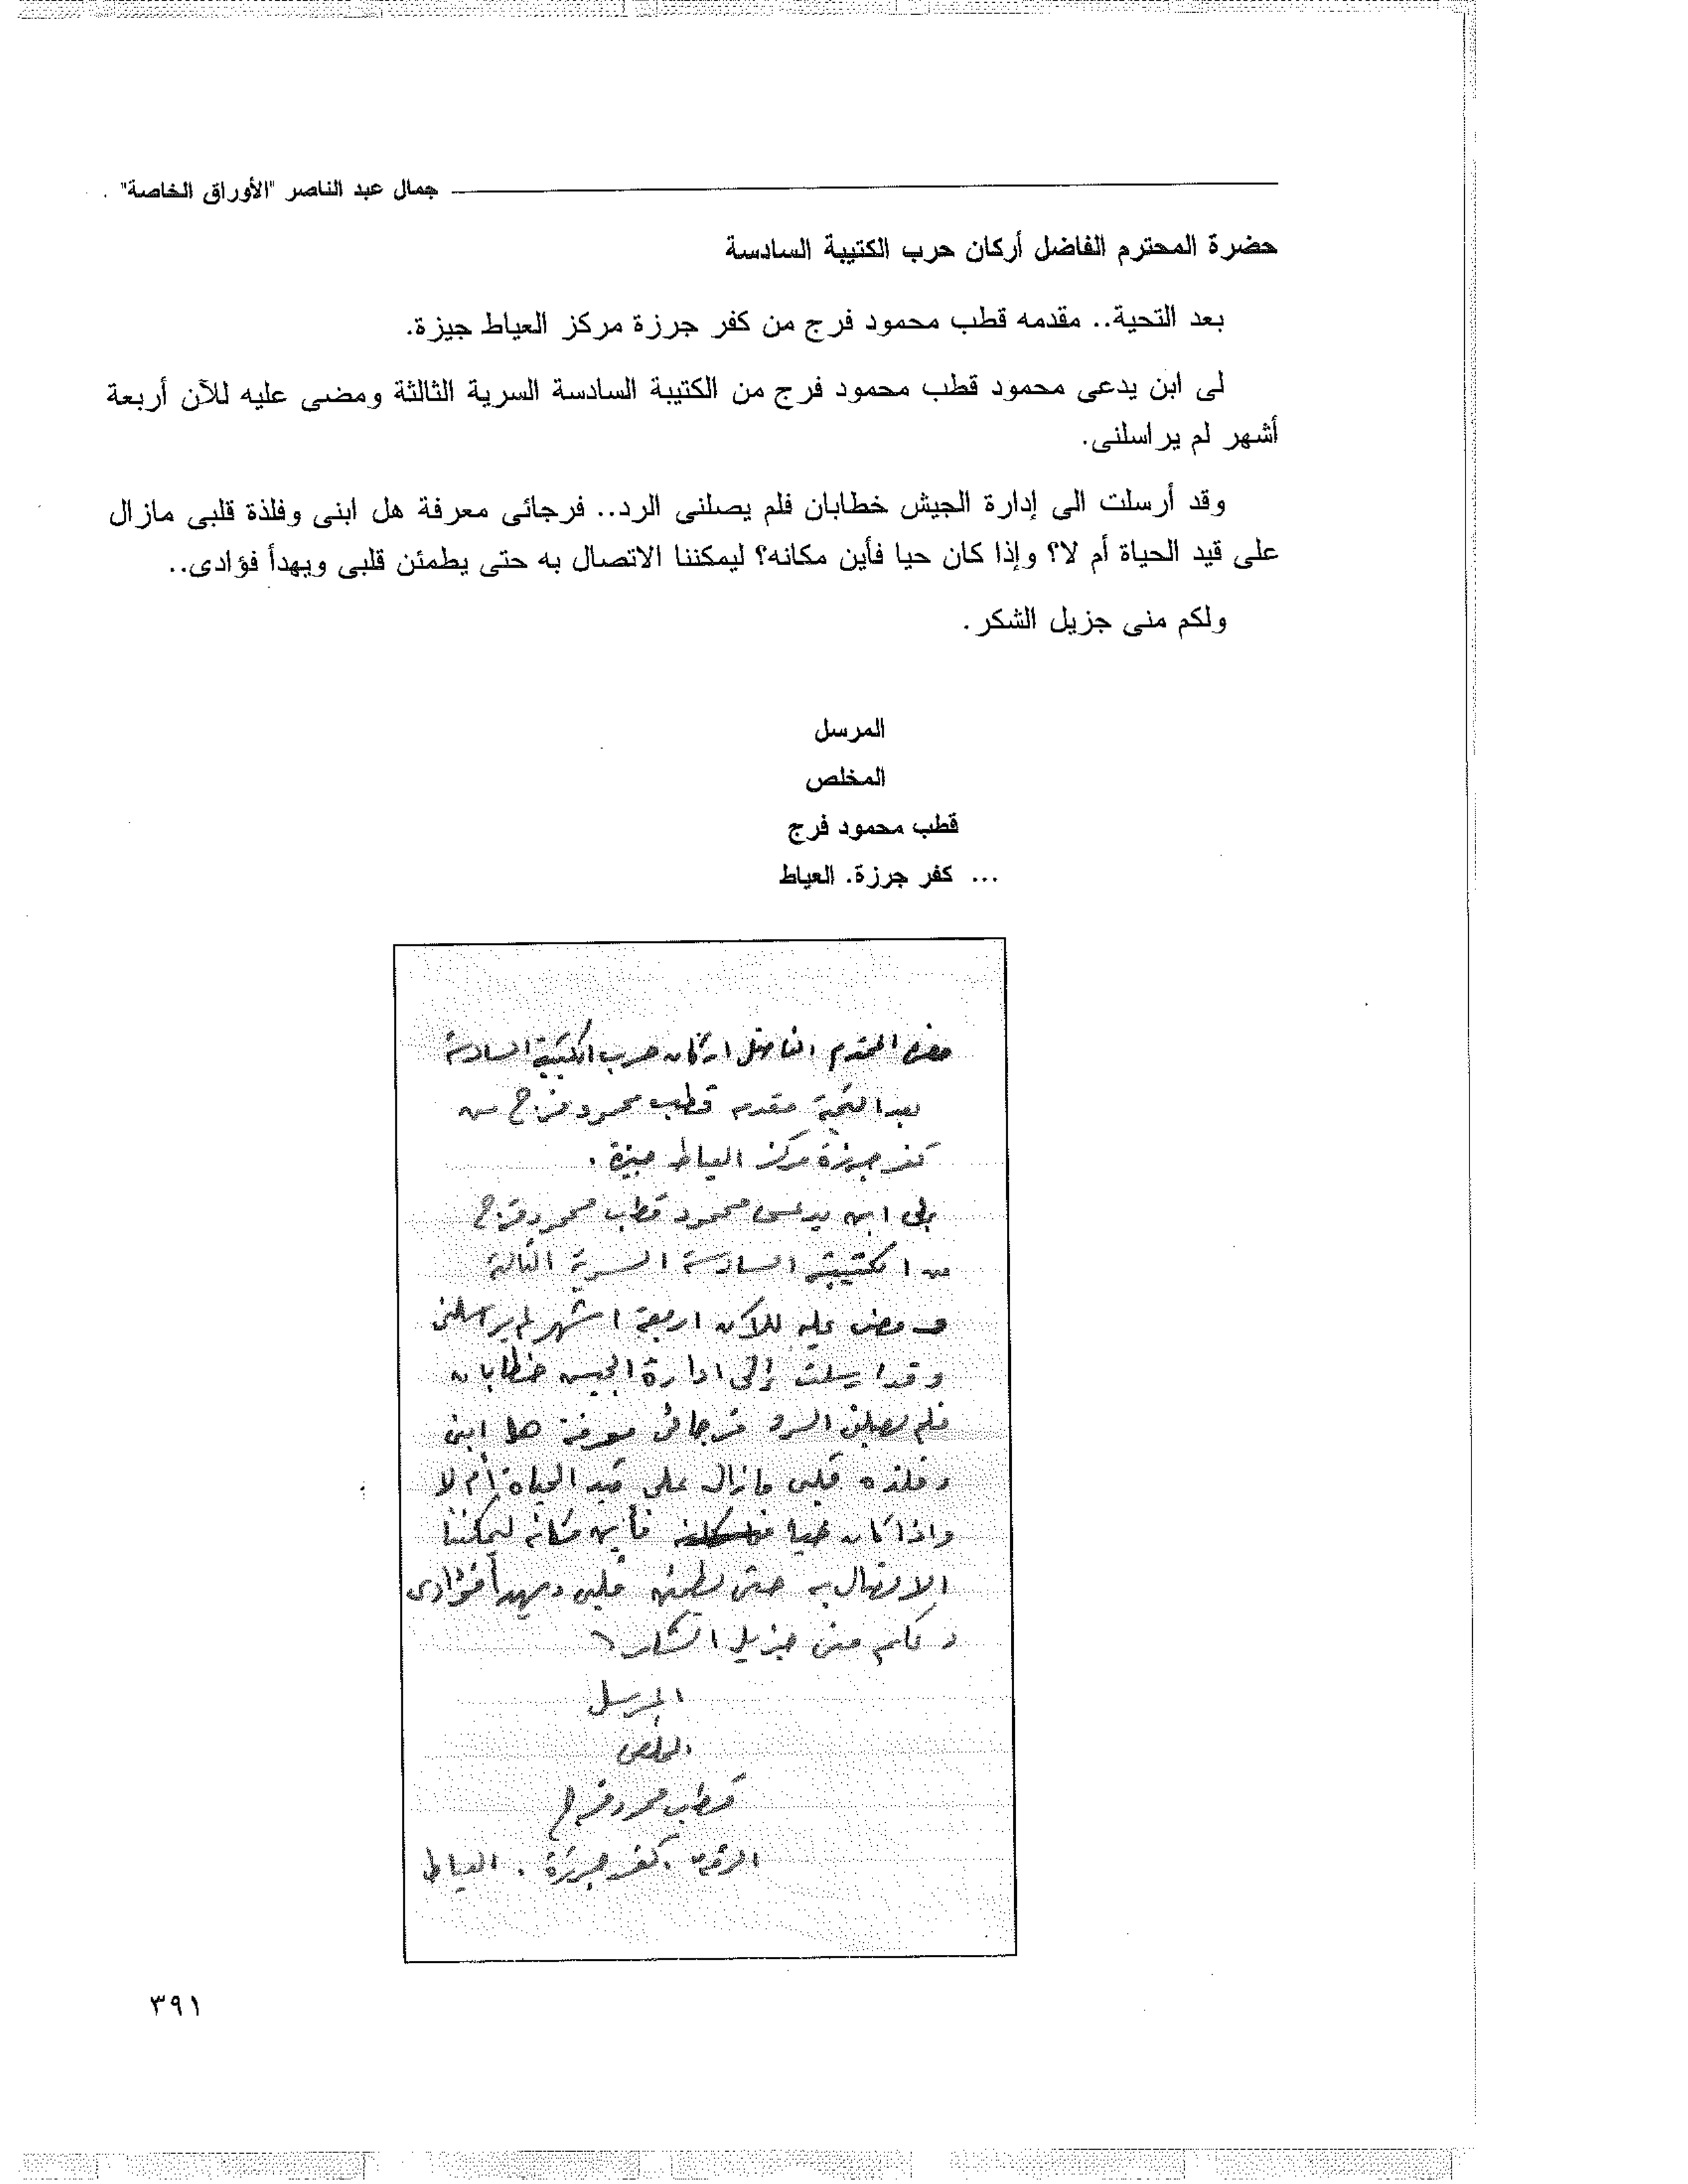 جمال عبد الناصر "الأوراق الخاصة"
حضرة المحترم الفاضل أركان حرب الكتيبة السادسة
بعد التحية.. مقدمه قطب محمود فرج من كفر جرزة مركز العياط جيزة.
لى ابن يدعى محمود قطب محمود فرج من الكتيبة السادسة السرية الثالثة ومضى عليه للآن أربعة
أشهر لم يراسلنى.
وقد أرسلت الى إدارة الجيش خطابان فلم يصلنى الرد.. فرجائى معرفة هل ابنى وفلذة قلبى مازال
على قيد الحياة أم لا؟ وإذا كان حيا فأين مكانه؟ ليمكننا الاتصال به حتى يطمئن قلبى ويهدأ فؤادى..
ولكم منى جزيل الشكر.
المرسل
المخلص
قطب محمود فرج
... كفر جرزة. العياط
حضرة المحترم الفاضل اركان حرب الكتيبة السادسة
بعد التحية مقدمه قطب محمود فرج من
كفر جرزة مركز العياط جيزة .
لى ابن يدعى محمود قطب محمود فرج
من الكتيبة السادسة السرية الثالثة
و مضى عليه للآن اربعة اشهر لم يراسلنى
وقد ارسلت إلى ادارة الجيش خطابان
فلم يصلنى الرد فرجائى معرفة هل ابنى
وفلذه قلبى مازال على قيد الحياة أم لا
واذا كان حيا فأين مكانه ليمكننا
الاتصال به حتى يطمئن قلبى ويهدأ فؤادى
ولكم منى جزيل الشكر
المرسل
المخلص
قطب محمود فرج
كفر جرزة . العياط
٣٩١